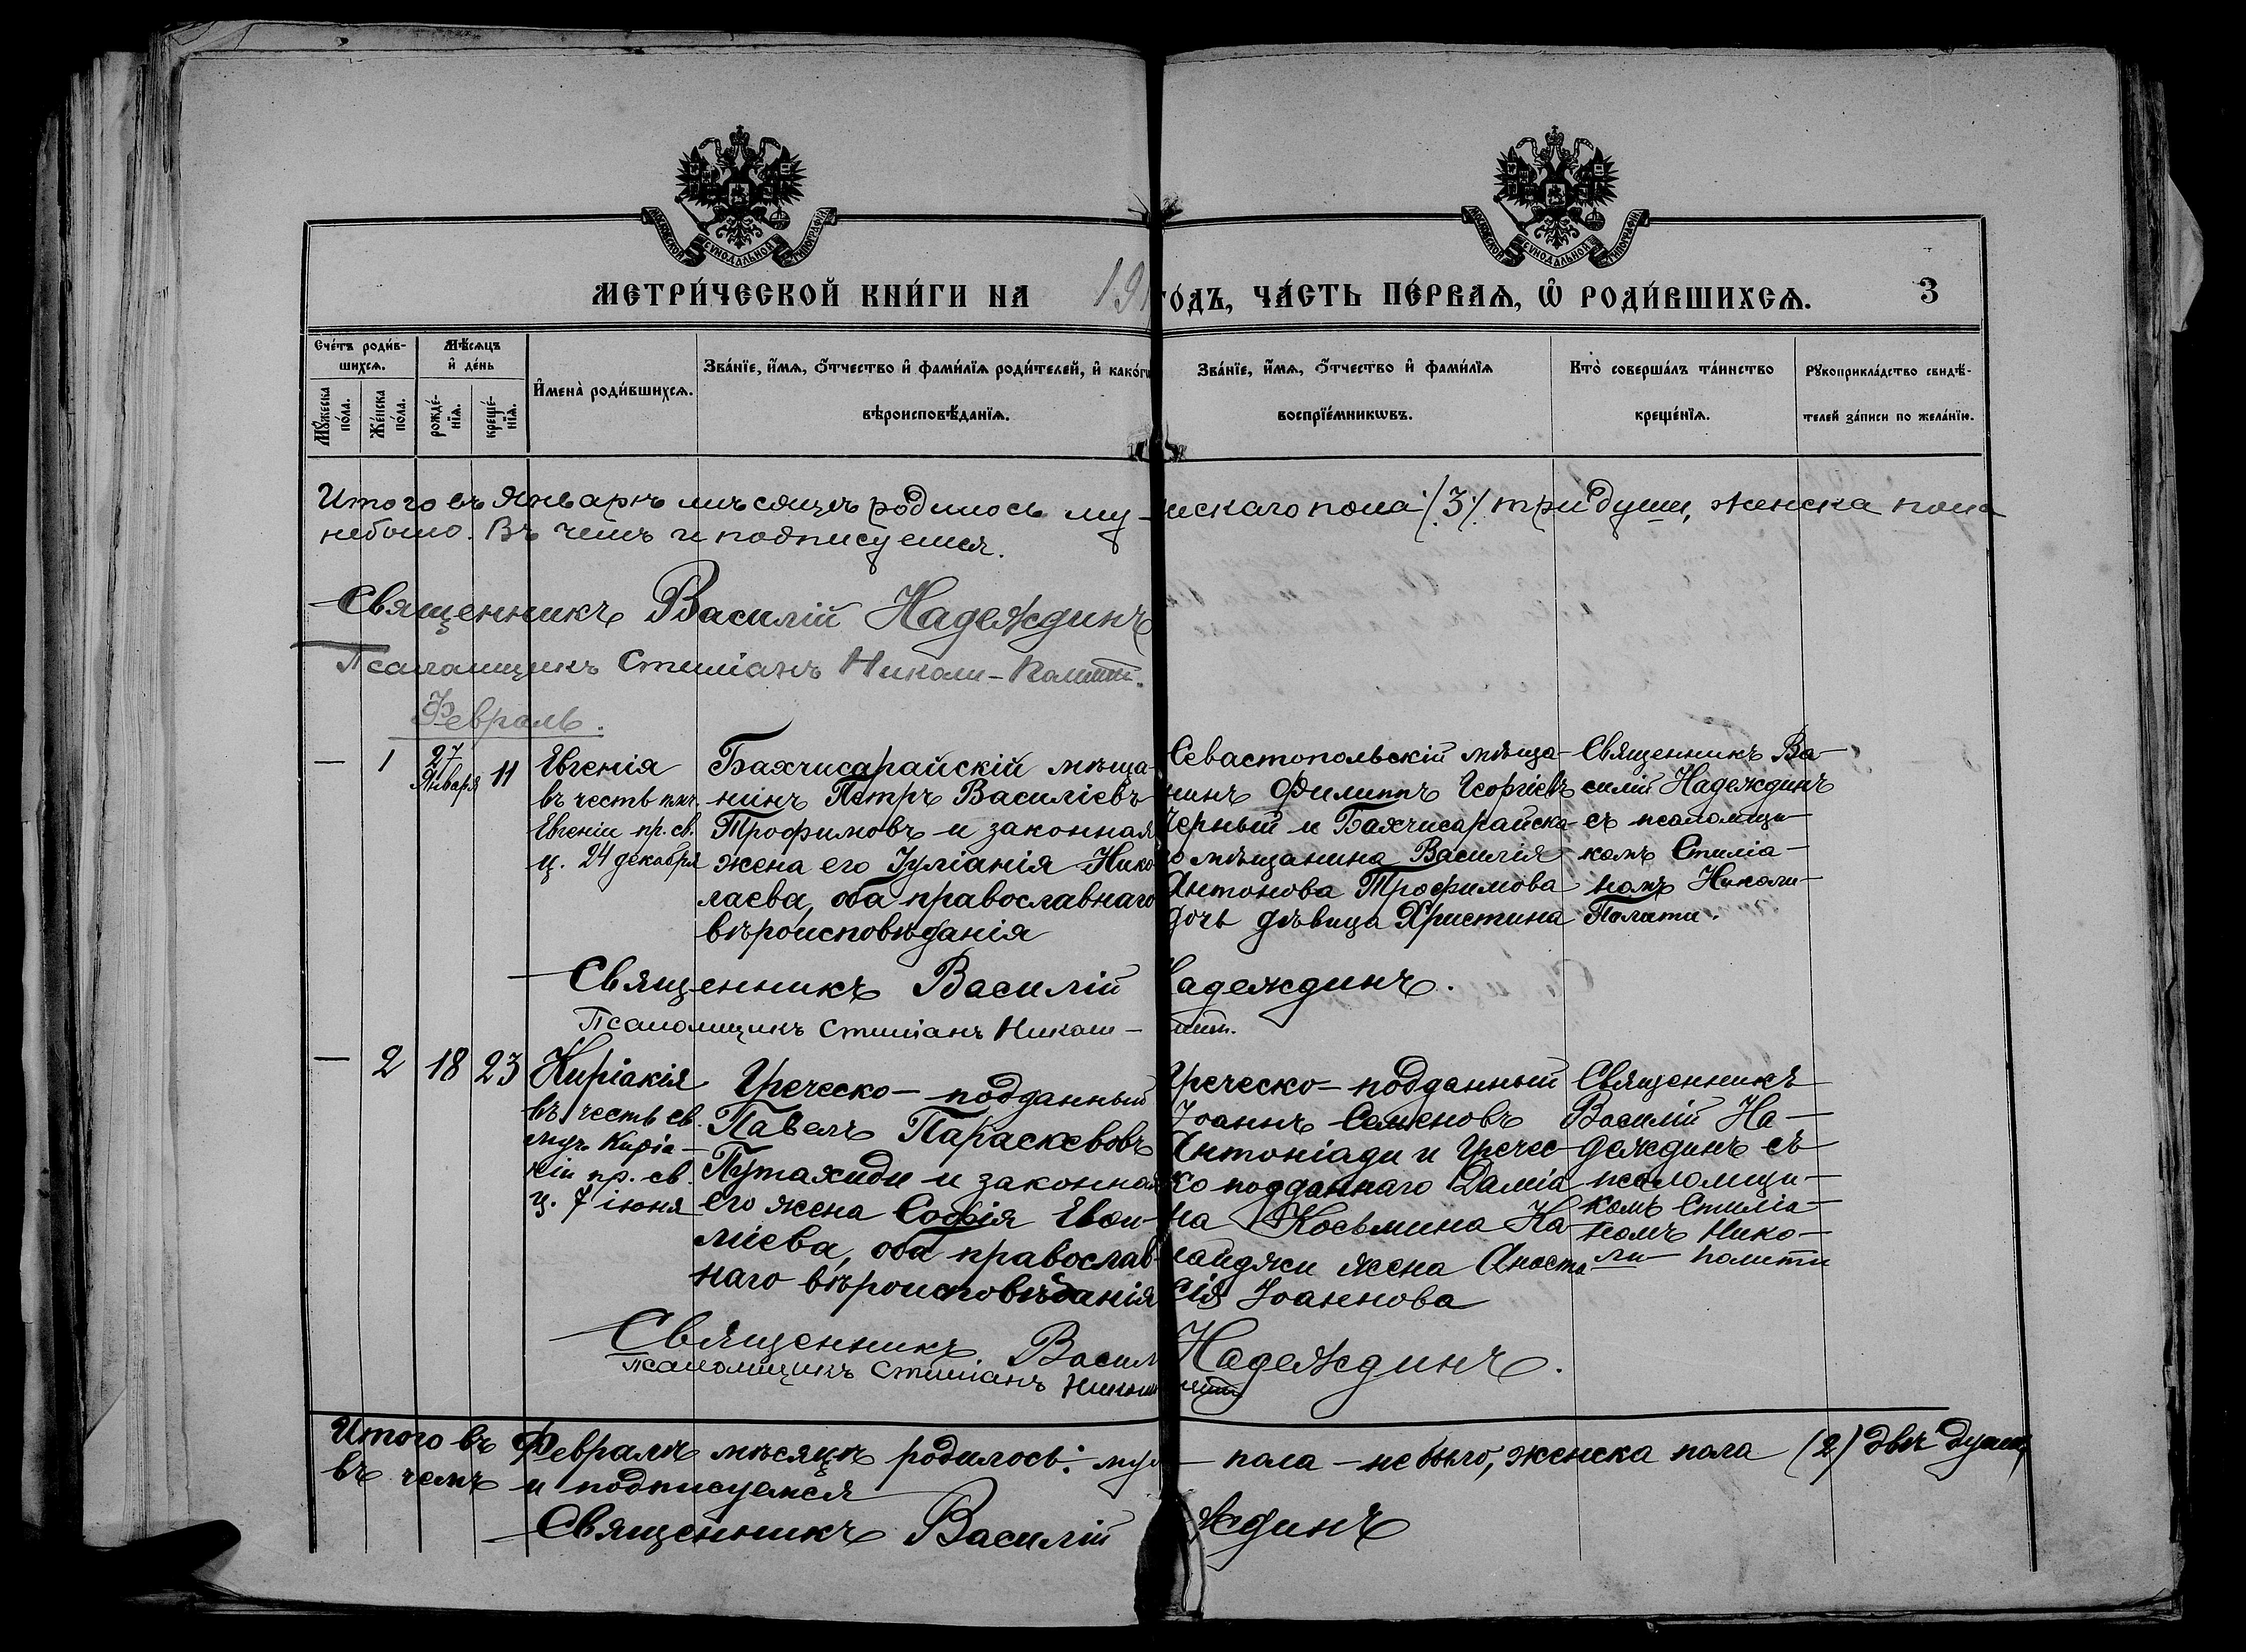 МОСКОВСКОЙ СѴНОДАЛЬНОЙ ТИПОГРАФІИ
МОСКОВСКОЙ СѴНОДАЛЬНОЙ ТИПОГРАФІИ
МЕТРИ́ЧЕСКОЙ КНИ́ГИ НА 191
ГО́ДЪ, ЧА́СТЬ ПЕ́РВАѦ, Ѡ҆ РОДИ́ВШИХСѦ. 3
Сче́тъ роди́в-
шихсѧ.
Мꙋ́жеска по́ла.
Же́нска по́ла.
Мѣ́сѧцъ
и҆ де́нь
рожде́-
нїѧ.
креще́-
нїѧ.
И҆мена̀ роди́вшихсѧ.
Зва́нїе, и҆́мѧ, ѻ҆́тчество и҆ фами́лїѧ роди́телей, и҆ како́гѡ
вѣроисповѣ́данїѧ.
Зва́нїе, и҆́мѧ, ѻ҆́тчество и҆ фами́лїѧ
воспрїе́мникѡвъ.
Кто̀ соверша́лъ та́инство
креще́нїѧ.
Рꙋкоприкла́дство свидѣ́-
телей за́писи по жела́нїю.
Итого въ Январѣ мѣсяцѣ родилось му- жскаго пола /3/ три души, женска пола
небыло. Въ чемъ и подписуемся.
Священникъ Василій Надеждинъ
Псаломщикъ Стиліанъ Николи-Полити.
Февраль.
— 1 27 Января 11
Евгенія
въ честь
Евгеніи пр. св.
ц. 24 декабря
Бахчисарайскій мѣща-
нинъ Петръ Василіевъ
Трофимовъ и законная
жена его Іуліанія Нико
лаева, оба православнаго
вѣроисповѣданія
Севастопольскій мѣща-
нинъ Филиппъ Георгіевъ
Черный и Бахчисарайска-
го мѣщанина Василія
Антонова Трофимова
дочь дѣвица Христина
Священникъ Ва-
силій Надеждинъ
съ псаломщи-
комъ Стиліа-
номъ Николи-
Полити.
Священникъ Василій Надеждинъ.
Псаломщикъ Стиліанъ Николи- лити.
— 2 18 23
Киріакія
въ честь св.
муч. Киріа-
кіи пр. св.
ц. 7 іюня
Греческо-подданный
Павелъ Параскевовъ
Путахиди и законная
его жена Софія Еван-
ліева, оба православ-
наго вѣроисповѣданія
Греческо-подданный
Іоаннъ Семеновъ
Антоніади и Гречес-
ко подданнаго Даміа
на Косьмина Ка-
найджи жена Анаста
сія Іоаннова
Священникъ
Василій На-
деждинъ съ
псаломщи-
комъ Стиліа-
номъ Нико-
ли-Полити
Священникъ Васил Надеждинъ.
Псаломщикъ Стиліанъ Николи лити
Итого въ Февралѣ мѣсяцѣ родилось: муж- пола - небыло, женска пола (2) двѣ души,
въ чемъ и подписуемся
Священникъ Василій ждинъ